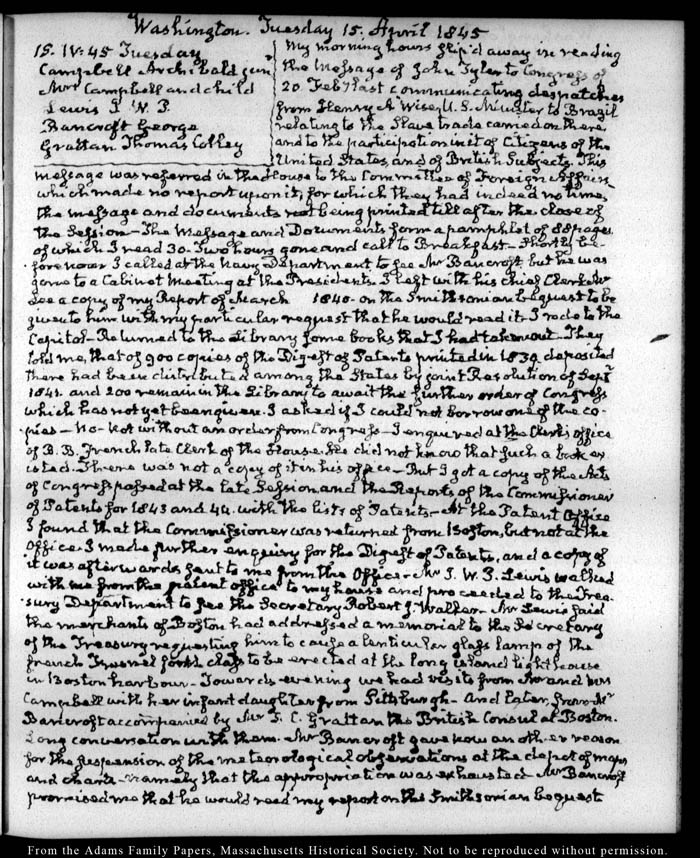 Washington. Tuesday 15. April 1845
15. IV:45 Tuesday
Campbell Archibald jun
Mrs Campbell and child
Lewis I. W. P.
Bancroft George
Grattan Thomas Colley
My morning hours slip'd away in reading
the Message of John Tyler to Congress of
20. Feby last communicating despatches
from Henry A Wise, U.S. Minister to Brazil
relating to the Slave trade carried on there
and to the participation in it of Citizens of the
United States, and of British Subjects. This
message was referred in the House to the Committee of Foreign Affairs
which made no report upon it, for which they had indeed no time,
the message and documents not being printed till after the close of
the Session – The Message and Documents form a pamphlet of 88 pages
of which I read 30. Two hours gone and call to Breakfast – Shortly be-
fore noon I called at the Navy Department to see Mr Bancroft but he was
gone to a Cabinet Meeting at the Presidents. I left with his chief Clerk Mr
a copy of my Report of March 1840. on the Smithsonian bequest to be
given to him with my particular request that he would read it. I rode to the
Capitol – Returned to the Library some books that I had taken out – They
told me, that of 900 copies of the Digest of Patents printed in 1839. deposited
there had been distributed among the States by joint Resolution of Septr
1841. and 200 remain in the Library to await the further order of Congress
which has not yet been given. I asked if I could not borrow one of the co-
pies – No – Not without an order from Congress – I enquired at the Clerk's office
of B. B. French late Clerk of the House. He did not know that such a book ex
isted. There was not a copy of it in his office – But I got a copy of the Acts
of Congress passed at the late Session and the Reports of the Commissioner
of Patents for 1843 and 44. with the lists of Patents – At the Patent Office
I found that the Commissioner was returned from Boston, but not at the
Office. I made further enquiry for the Digest of Patents, and a copy of
it was afterwards sent to me from the Office – Mr I. W. P. Lewis walked
with me from the patent office to my house and proceeded to the Trea-
sury Department to see the Secretary Robert J. Walker – Mr Lewis said
the merchants of Boston had addressed a memorial to the Secretary
of the Treasury requesting him to cause a lenticular glass lamp of the
french Fresnel fourth class to be erected at the long island light house
in Boston harbour – Towards evening we had visits from Mr and Mrs
Campbell with her infant daughter from Pittsburgh – And later, from Mr
Bancroft accompanied by Mr T. C. Grattan the British Consul at Boston.
Long conversation with them – Mr Bancroft gave now another reason
for the suspension of the meteorological observations at the depot of maps
and charts – namely that the appropriation was exhausted – Mr Bancroft
promised me that he would read my report on the Smithsonian bequest
From the Adams Family Papers, Massachusetts Historical Society. Not to be reproduced without permission.